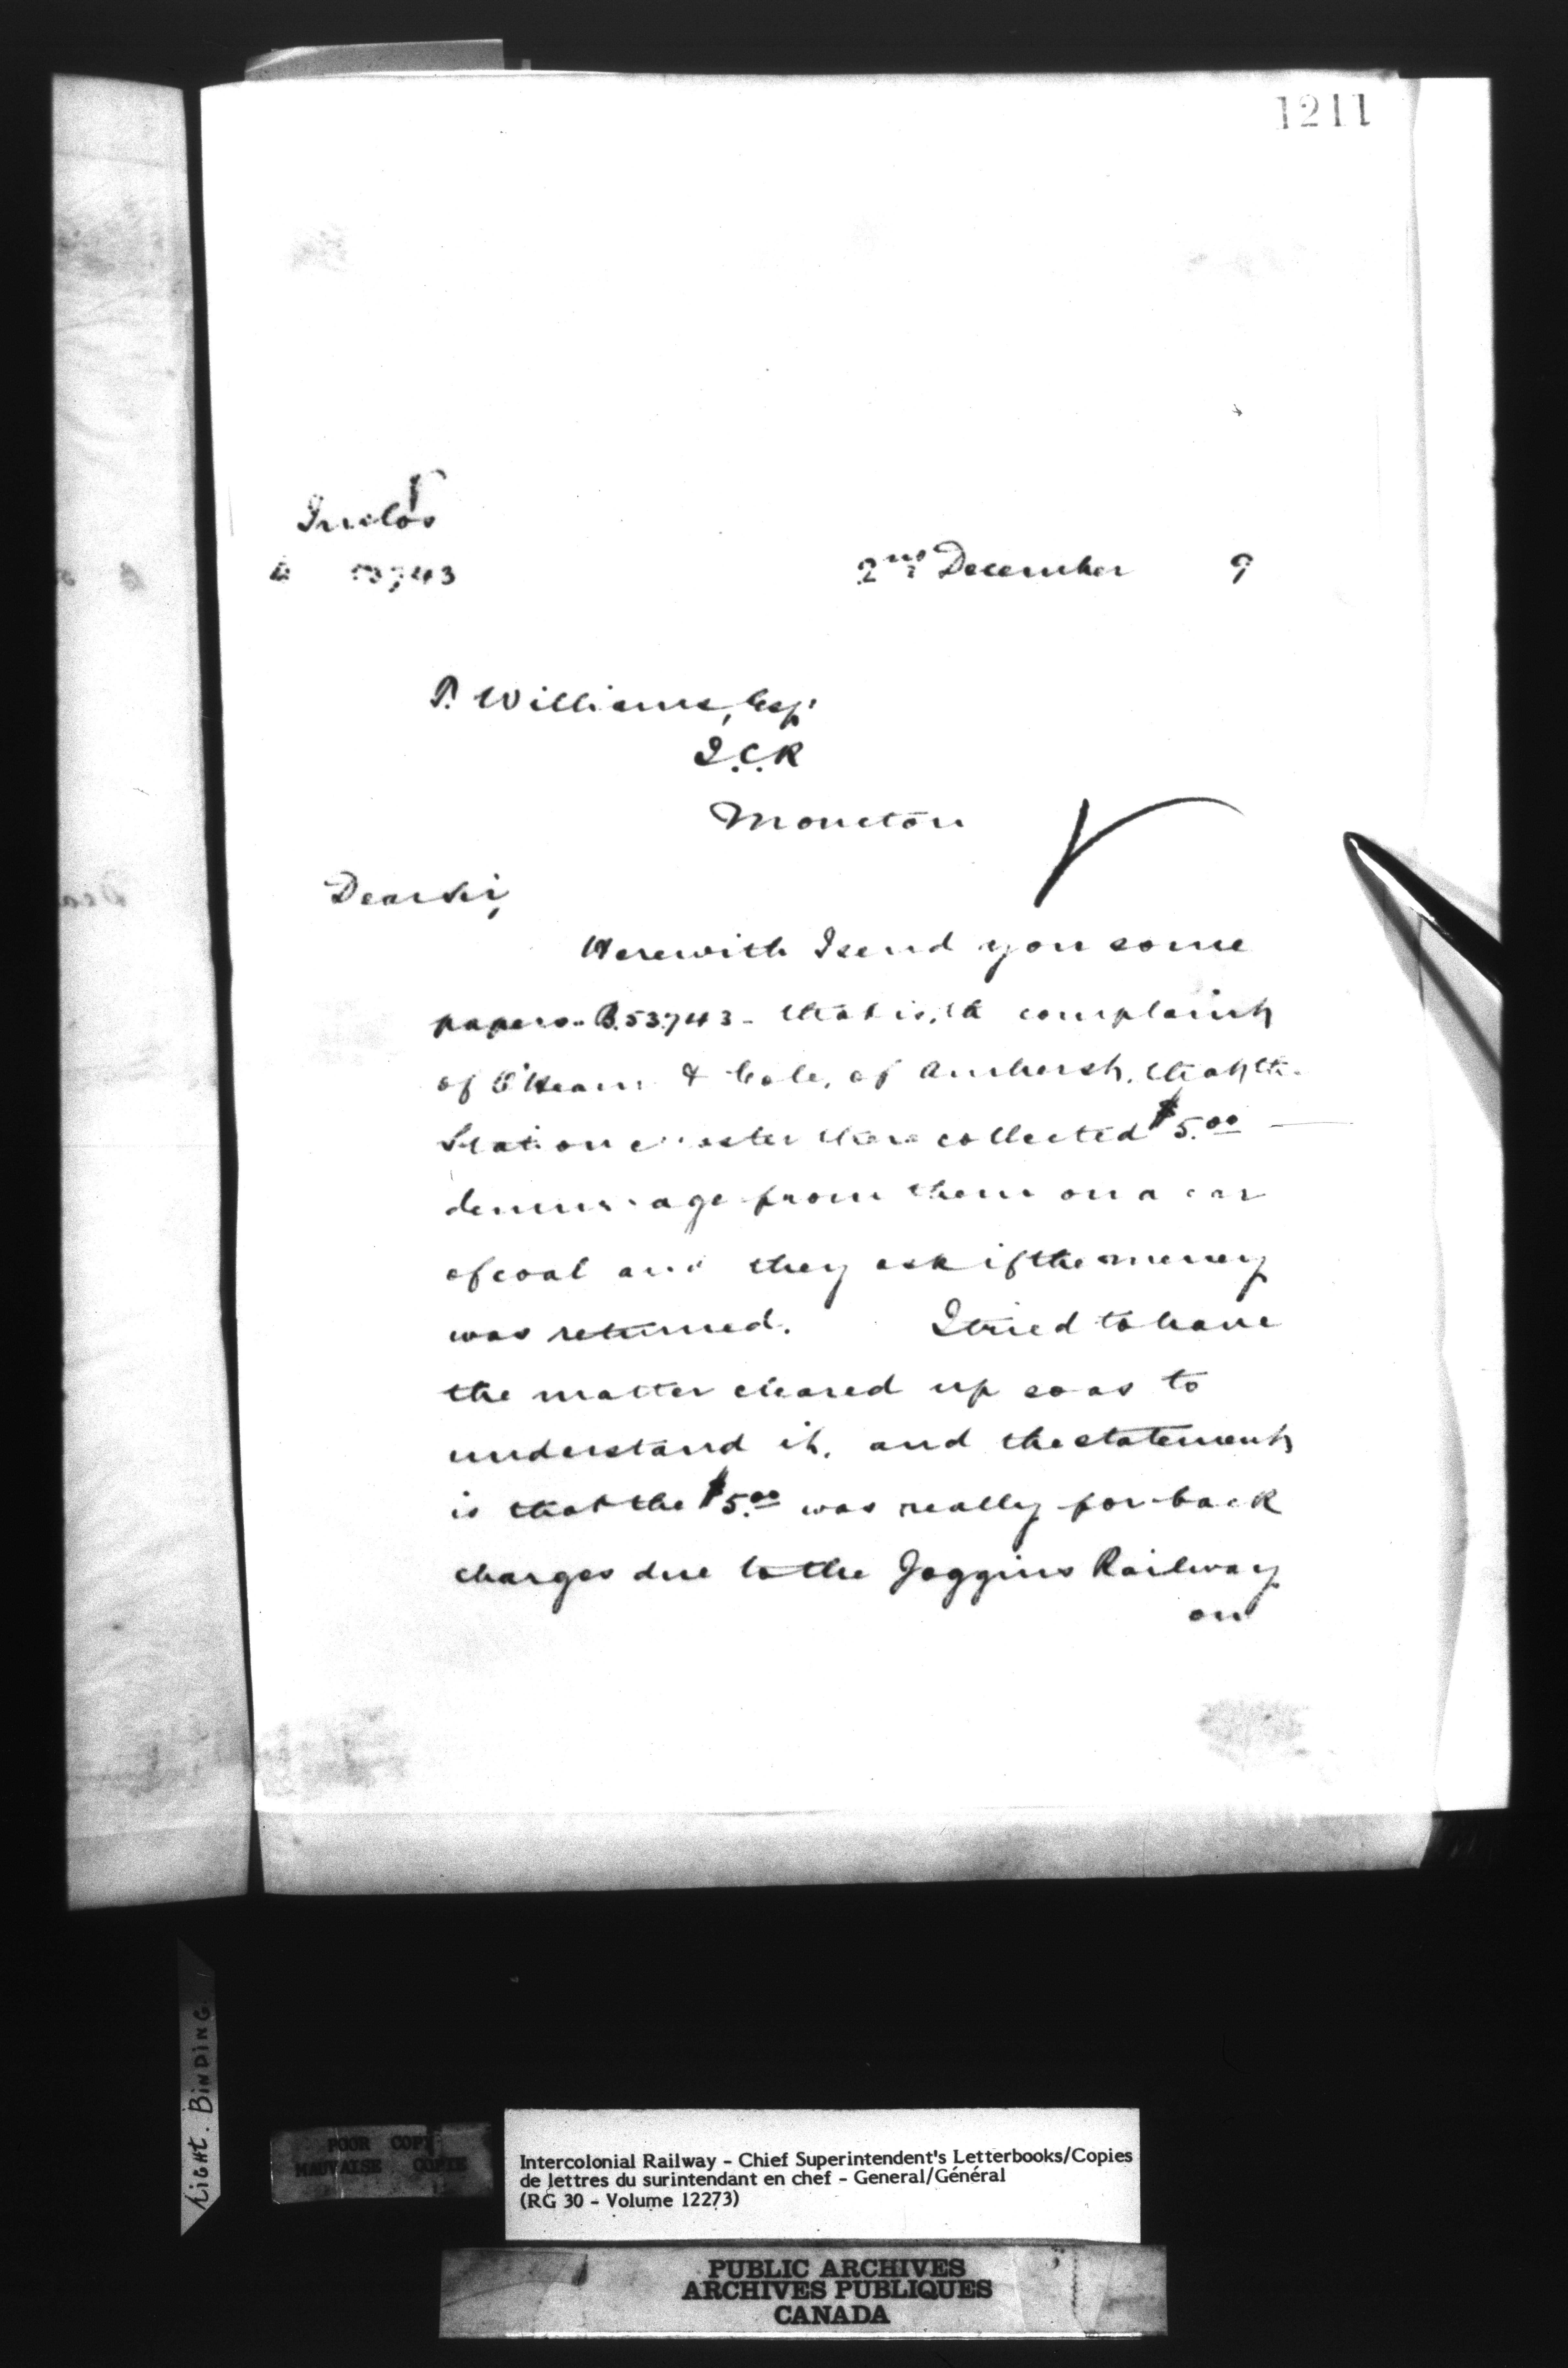 1211
Inclos
B 53743
2nd December 9
P. Williams, Esq.
I.C.R
Moncton
Dear Sir,
Herewith I send you some
papers. B.53743 - that is, the complaint
of O'Hearn & Cole, of Amherst, that the
Station master there collected $5.00
demurrage from them on a car
of coal and they ask if the money
was returned. I tried to have
the matter cleared up so as to
understand it, and the statement
is that the $5.00 was really for back
charges due to the Joggins Railway
on
Tight. Binding
POOR COPY
MAUVAISE COPIE
Intercolonial Railway - Chief Superintendent's Letterbooks/Copies
de lettres du surintendant en chef - General/Général
(RG 30 - Volume 12273)
PUBLIC ARCHIVES
ARCHIVES PUBLIQUES
CANADA